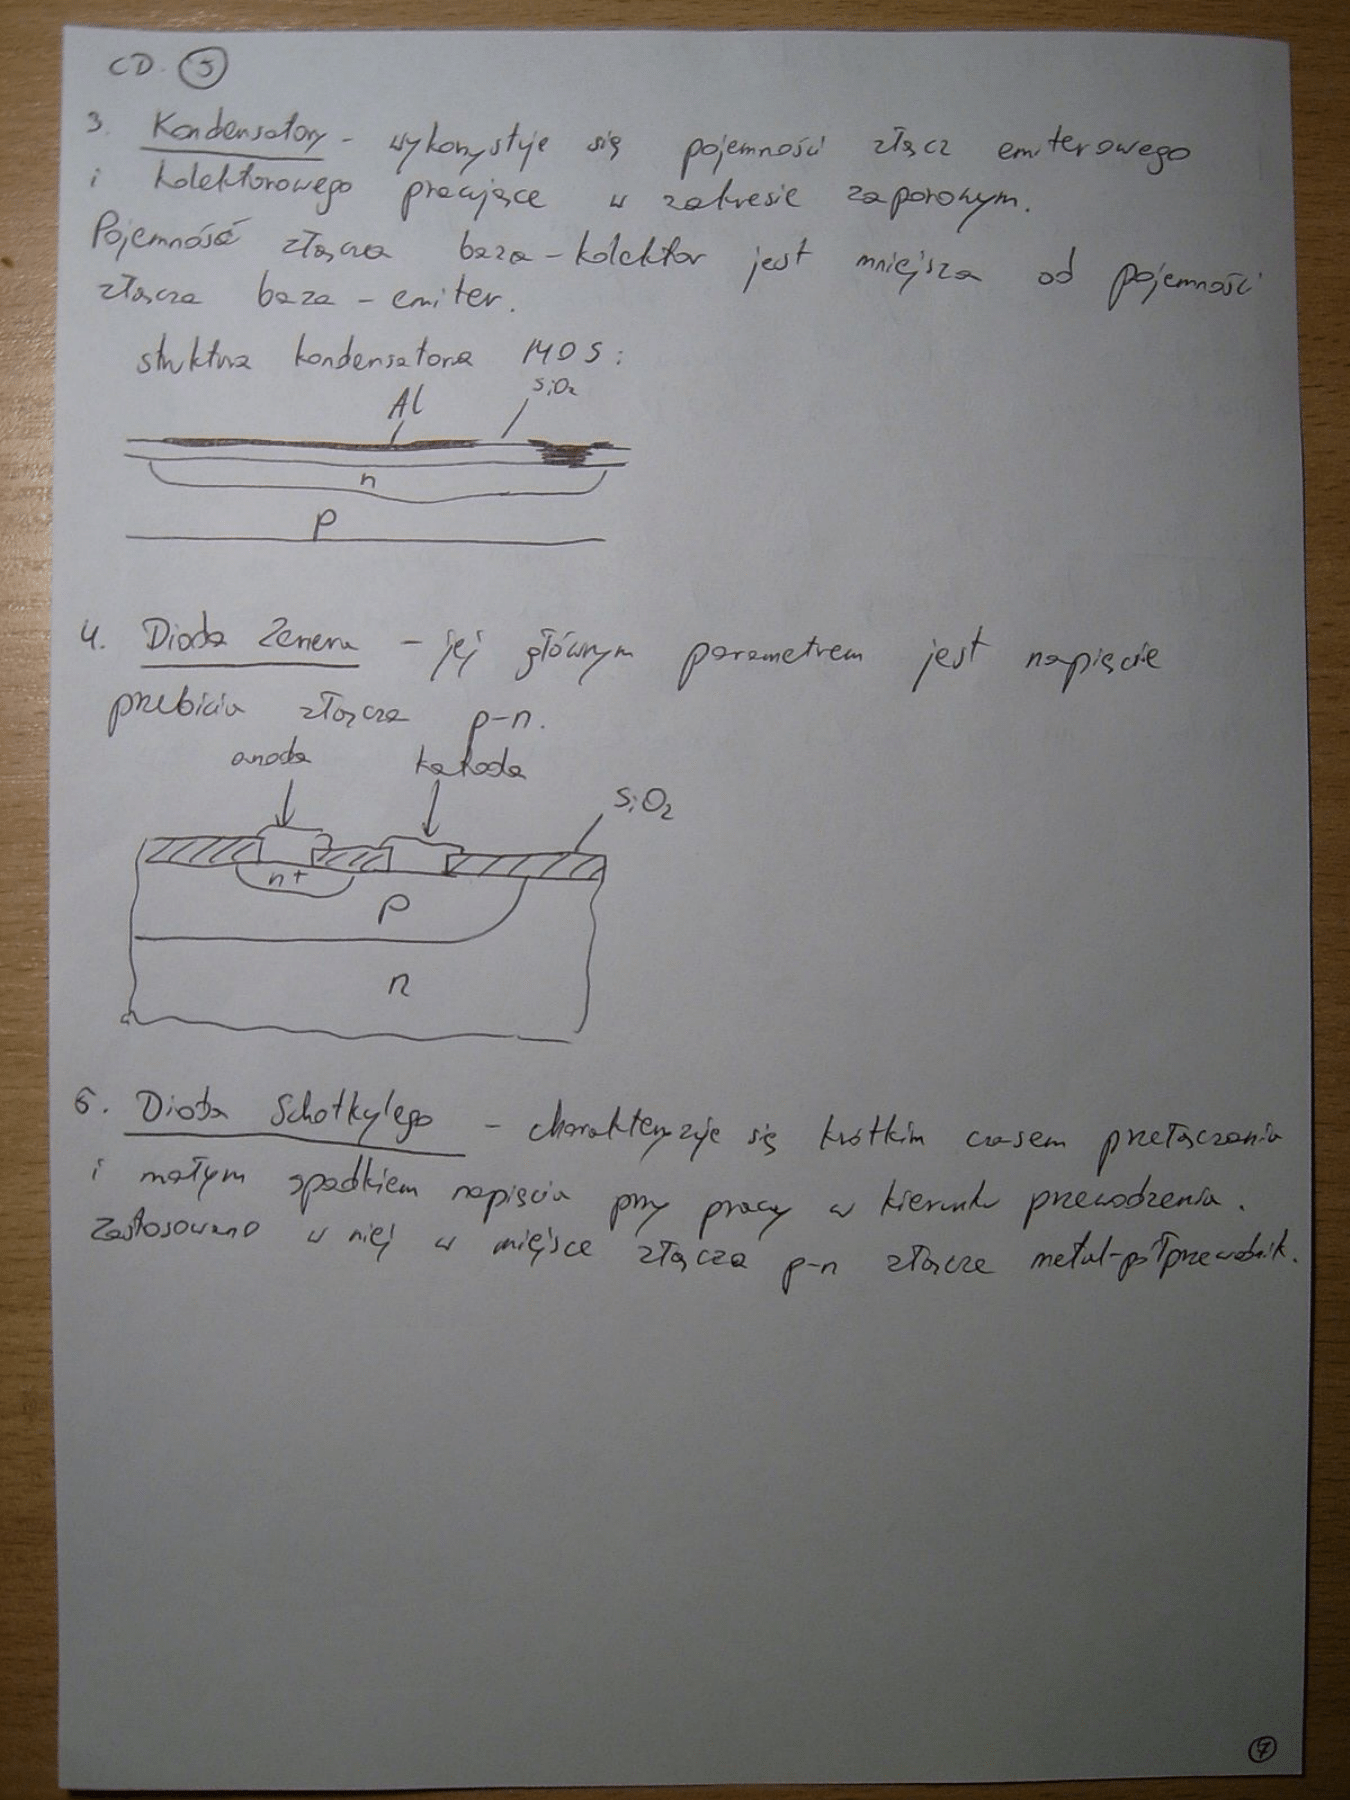 CD. 5
3. Kondensatory - wykorzystuje się pojemności złącz emiterowego
i kolektorowego pracujące w zakresie zaporowym.
Pojemność złącza baza-kolektor jest mniejsza od pojemności
złącza baza-emiter.
struktura kondensatora MOS:
Al SiO2
n
p
4. Dioda Zenera - jej głównym parametrem jest napięcie
przebicia złącza p-n.
anoda katoda
SiO2
n+
p
n
5. Dioda Schotky'ego - charakteryzuje się krótkim czasem przełączania
i małym spadkiem napięcia przy pracy w kierunku przewodzenia.
Zastosowano w niej w miejsce złącza p-n złącze metal-półprzewodnik.
7